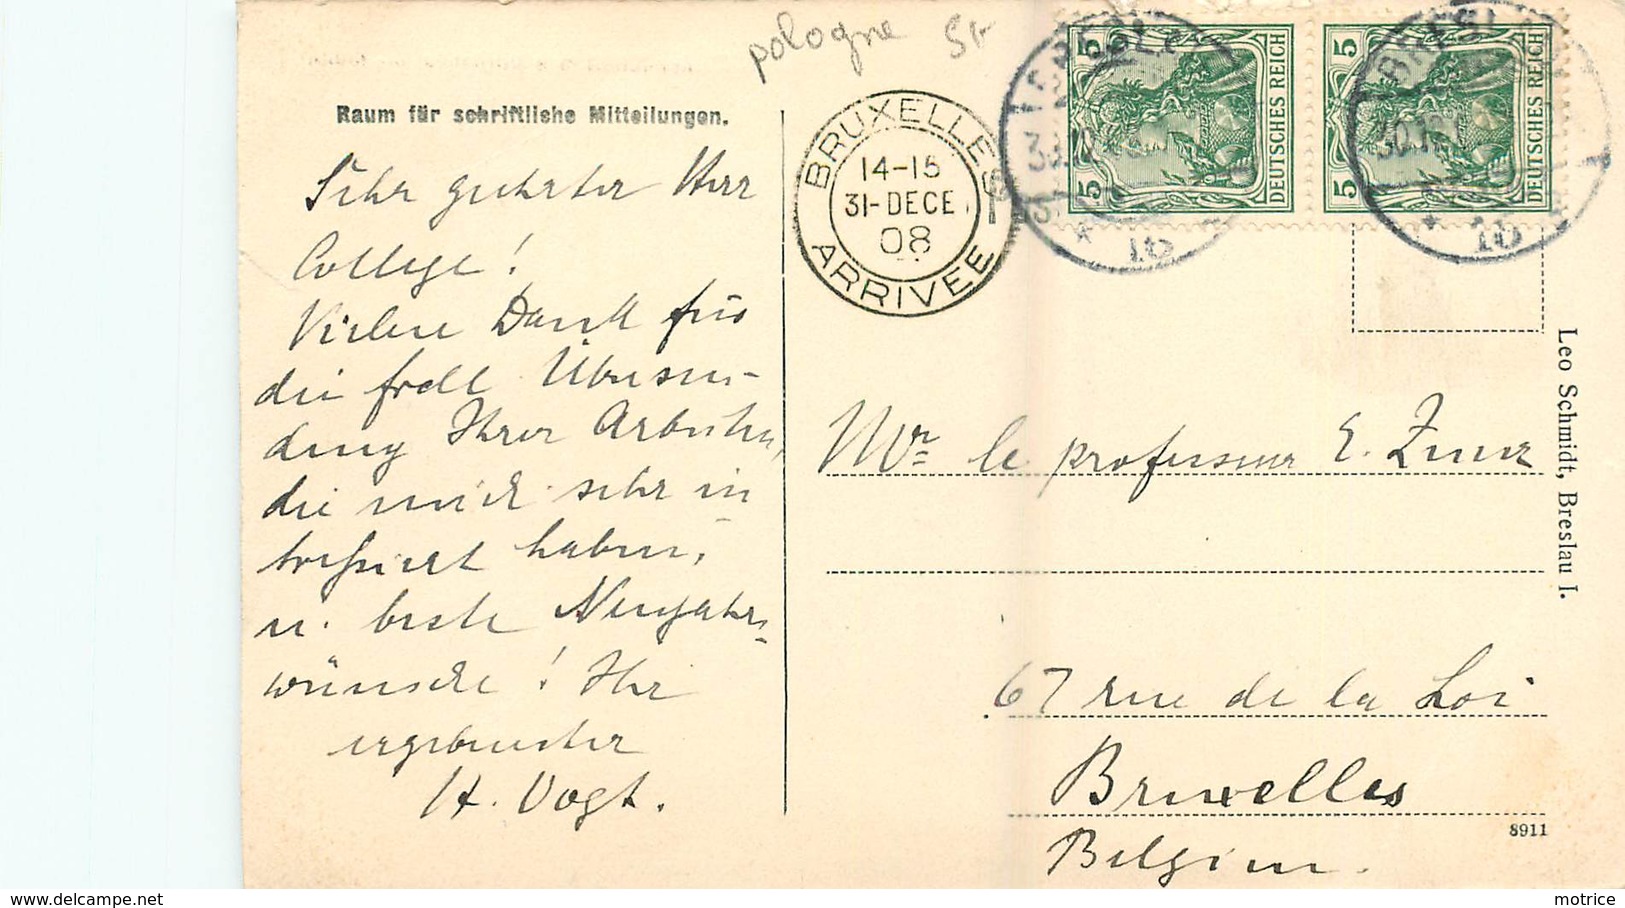 pologne
Raum für schriftliche Mitteilungen.
Sehr geehrter Herr
College!
Vielen Dank für
die frdl Übersen-
dung Ihrer Arbeiten,
die mich sehr in
teressiert haben,
u. beste Neujahrs-
wünsche! Ihr
ergebenster
H. Vogt.
BRUXELLES
14-15
31-DECE
08
ARRIVEE
BRESLAU
16
BRESLAU
30.12
16
5
5
DEUTSCHES REICH
5
5
DEUTSCHES REICH
Mr le professeur E.
67 rue de la Loi
Bruxelles
Belgien
Leo Schmidt, Breslau I.
8911
motrice